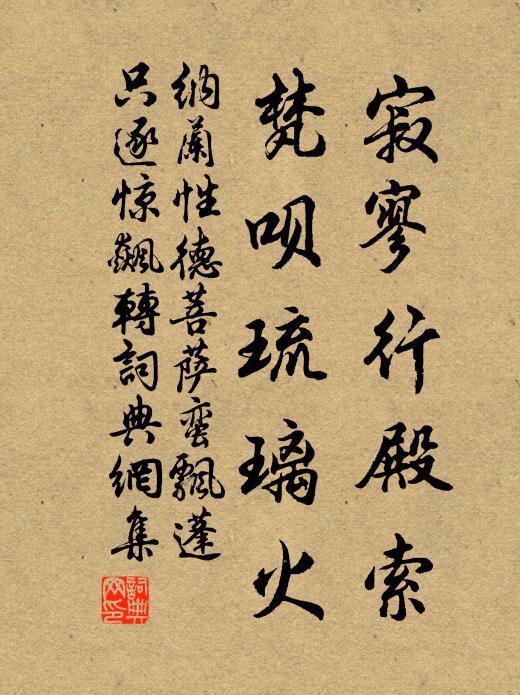 寂寥行殿索
梵呗琉璃火
納蘭性德菩萨蛮飄蓬
只逐惊飆轉詞典網集
詞典
网印